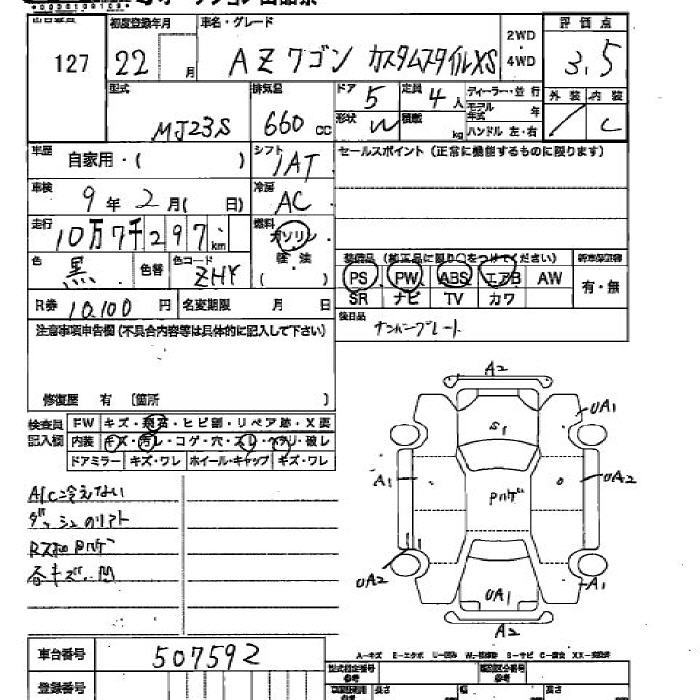 127
初度登録年月 22 月
車名・グレード AZワゴン カスタムスタイルXS
2WD ・ 4WD
評価点 3.5
外装 / 内装 C
型式 MJ23S
排気量 660 cc
ドア 5 定員 4 人
形状 W 積載 kg
ディーラー・並行
モデル年式 年
ハンドル 左・右
車歴 自家用・( )
シフト IAT
セールスポイント (正常に機能するものに限ります)
車検 9 年 2 月( 日)
冷房 AC
走行 10万7千297 km
燃料 ガソリン 軽油 ( )
色 黒 色替 色コード ZHY
装備品 (純正品に限り○をつけてください)
PS PW ABS エアB AW
SR ナビ TV カワ
新車保証書 有・無
R券 10,100 円 名変期限 月 日
後日品 ナンバープレート
注意事項申告欄(不具合内容等は具体的に記入して下さい)
修復歴 有 〔箇所 〕
検査員記入欄
FW キズ・飛石・ヒビ割・リペア跡・X要
内装 キズ・汚れ・コゲ・穴・スレ・ヘタリ・破レ
ドアミラー キズ・ワレ ホイール・キャップ キズ・ワレ
A/C冷えない
各キズ、凹
A2
UA1
S1
A1
UA2
Pハゲ
UA2
UA1
A1
A2
車台番号 507592
登録番号
A-キズ E-エクボ U-凹み W-補修跡 S-サビ C-腐食 XX-交換済
型式指定番号 参考
類別区分番号 参考
長さ 幅 高さ